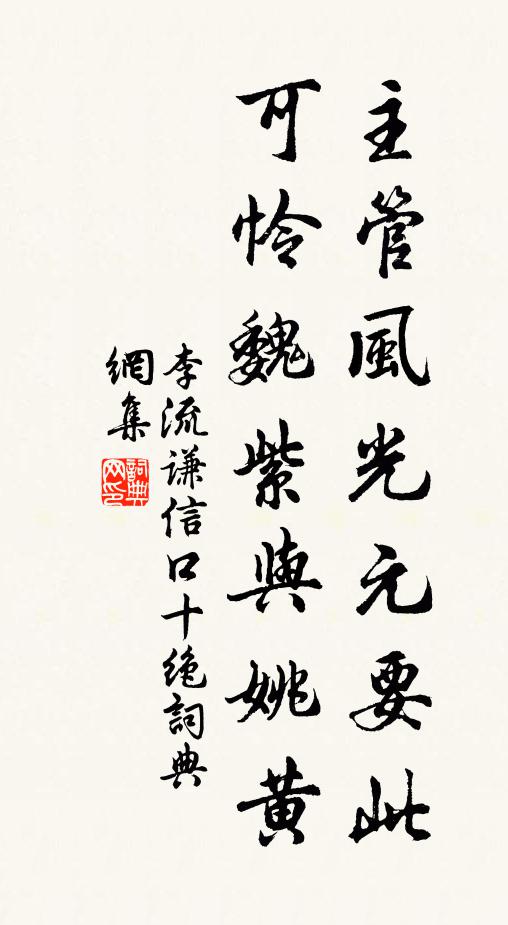 主管風光元要此
可怜魏紫與姚黃
李流谦信口十绝詞典
網集
詞典网印